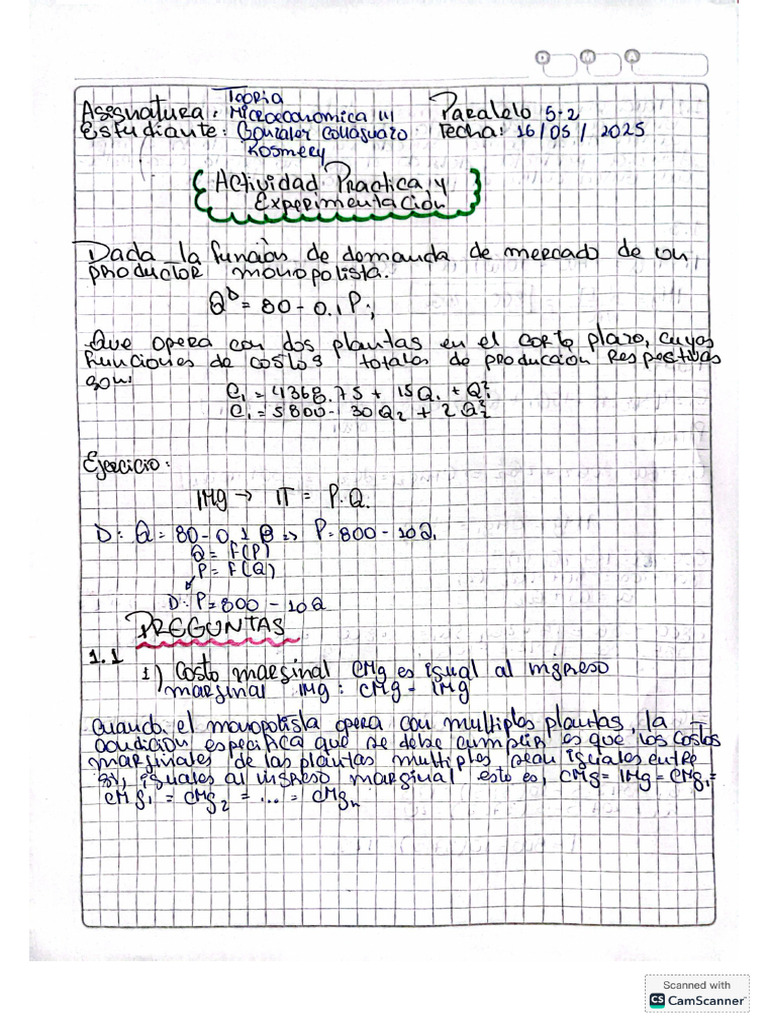 D M A
Teoria
Asignatura: Microeconomica III Paralelo 5-2
Estudiante: Gonzalez Collaguazo Fecha: 16/05/2025
Rosmery
Actividad Practica y
Experimentación
Dada la función de demanda de mercado de un
productor monopolista.
Qᴰ = 80 - 0.1 P;
Que opera con dos plantas en el corto plazo, cuyos
funciones de costos totales de producción respectivas
son:
C₁ = 4368.75 + 15Q₁ + Q₁²
C₁ = 5800 - 30Q₂ + 2Q₂²
Ejercicio:
IMg → IT = P.Q.
D: Q = 80 - 0,1 P => P=800 - 10Q.
Q = F(P)
P = F(Q)
D: P=800 - 10Q
PREGUNTAS
1.1
1) Costo marginal CMg es igual al ingreso
marginal IMg : CMg = IMg
Cuando el monopolista opera con multiples plantas, la
condición especifica que se debe cumplir es que los costos
marginales de las plantas multiples sean iguales entre
si, iguales al ingreso marginal esto es, CMg = IMg = CMg₁=
CMg₁ = CMg₂ = ... = CMgₙ
Scanned with
CS CamScanner